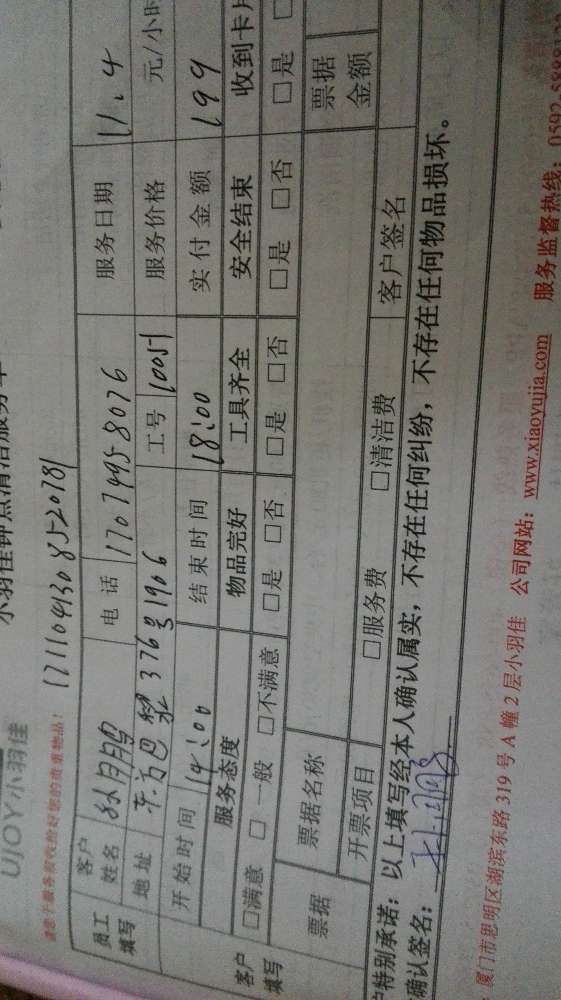 UJOY小羽佳
小羽佳钟点清洁服务单
1711041308520781
员工填写
客户姓名
电话 17074958076
服务日期 11.4
地址 东方巴黎376号1906
工号 10051
服务价格 元/小时
开始时间 14:00
结束时间 18:00
实付金额 199
客户填写
服务态度 物品完好 工具齐全 安全结束 收到卡片
□满意 □一般 □不满意 □是 □否 □是 □否 □是 □否 □是
票据 票据名称 票据金额
开票项目 □服务费 □清洁费 客户签名
户特别承诺：以上填写经本人确认属实，不存在任何纠纷，不存在任何物品损坏。
确认签名：
厦门市思明区湖滨东路319号A幢2层小羽佳 公司网站：www.xiaoyujia.com 服务监督热线：0592-5888123